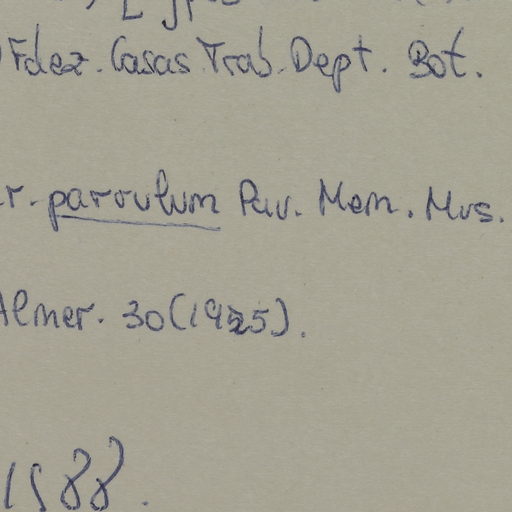 Fdez. Casas Trab. Dept. Bot.
r. parvulum Pau. Mem. Mus.
Almer. 30(1925).
1988.